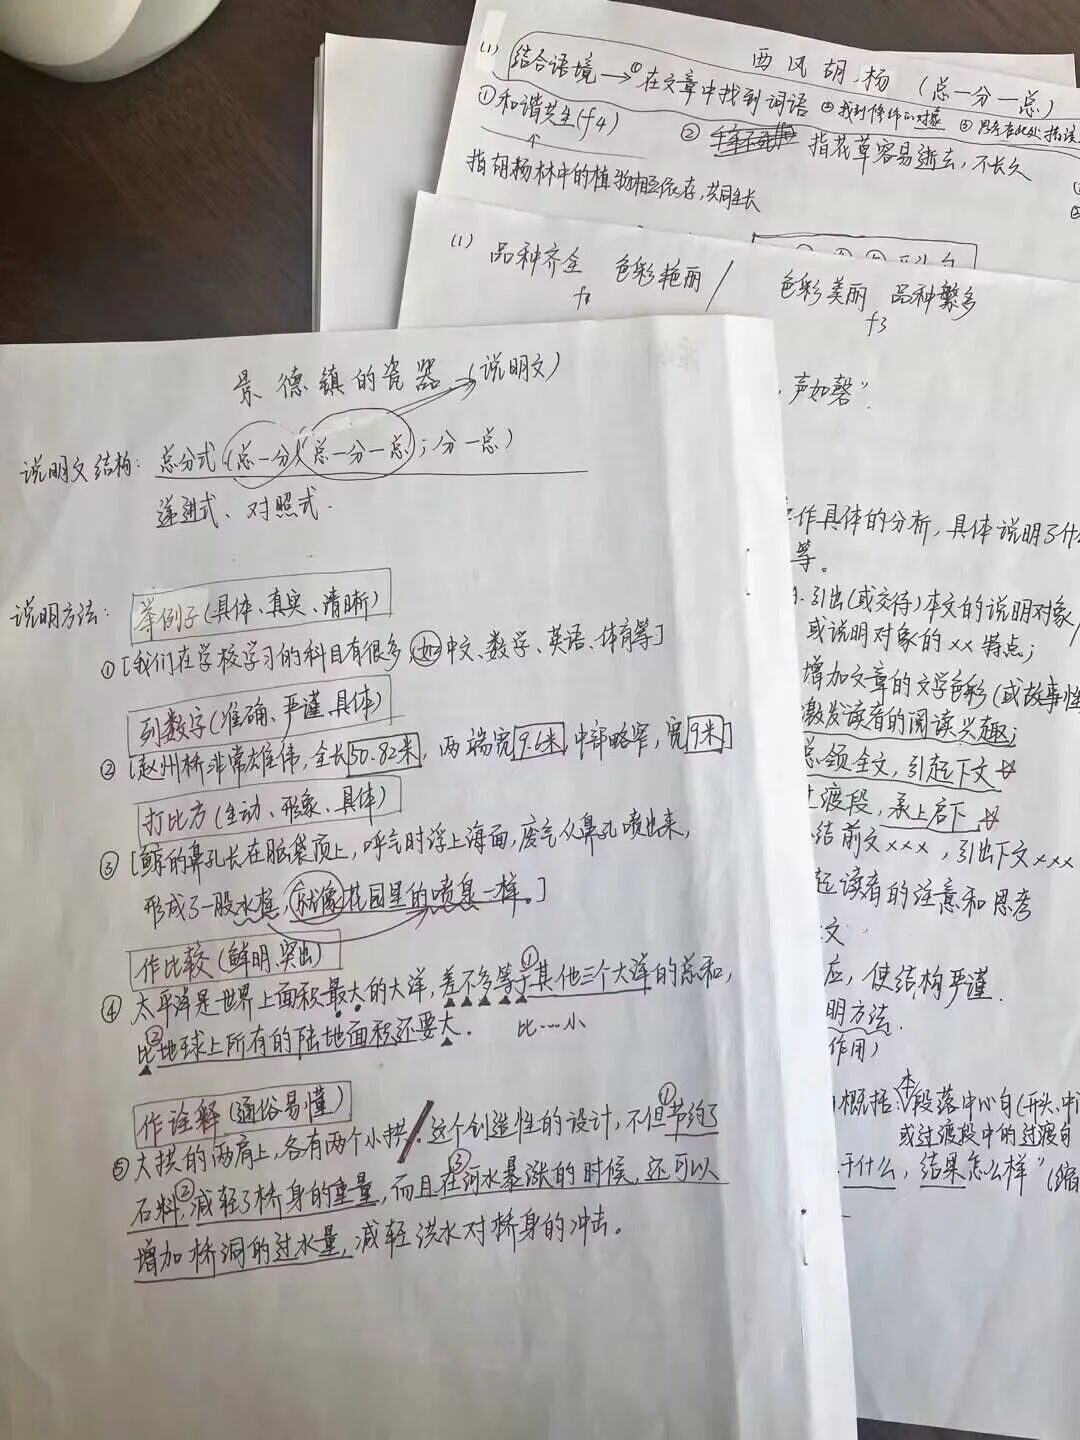 西风胡杨（总一分一总）
(1) 结合语境→①在文章中找到词语 ②找到修饰的对象
①和谐共生(f4) ② 指花草容易逝去,不长久
指胡杨林中的植物相互依存,共同生长
(1) 品种齐全 色彩艳丽 / 色彩美丽 品种繁多
f3
,声如磬”.
作具体的分析,具体说明了什
等。
引出(或交待)本文的说明对象/
或说明对象的xx特点;
增加文章的文学色彩(或故事性
激发读者的阅读兴趣;
总领全文,引起下文☆
过渡段,承上启下☆
结前文xxx,引出下文xxx
起读者的注意和思考
文
应,使结构严谨.
明方法.
作用)
概括:本段落中心句(开头、中
或过渡段中的过渡句
干什么,结果怎么样”(缩
景德镇的瓷器(说明文)
说明文结构:总分式(总一分(总一分一总);分一总)
递进式、对照式.
说明方法: 举例子(具体、真实、清晰)
①[我们在学校学习的科目有很多,如中文、数学、英语、体育等]
列数字(准确、严谨、具体)
②[赵州桥非常雄伟,全长50.82米,两端宽9.6米,中部略窄,宽9米]
打比方(生动、形象、具体)
③[鲸的鼻孔长在脑袋顶上,呼气时浮上海面,废气从鼻孔喷出来,
形成了一股水柱,就像花园里的喷泉一样。]
作比较(鲜明、突出)
④太平洋是世界上面积最大的大洋,差不多等于①其他三个大洋的总和,
比②地球上所有的陆地面积还要大. 比…小
作诠释(通俗易懂)
⑤大拱的两肩上,各有两个小拱.这个创造性的设计,不但①节约了
石料,②减轻了桥身的重量,而且③在河水暴涨的时候,还可以
增加桥洞的过水量,减轻洪水对桥身的冲击。